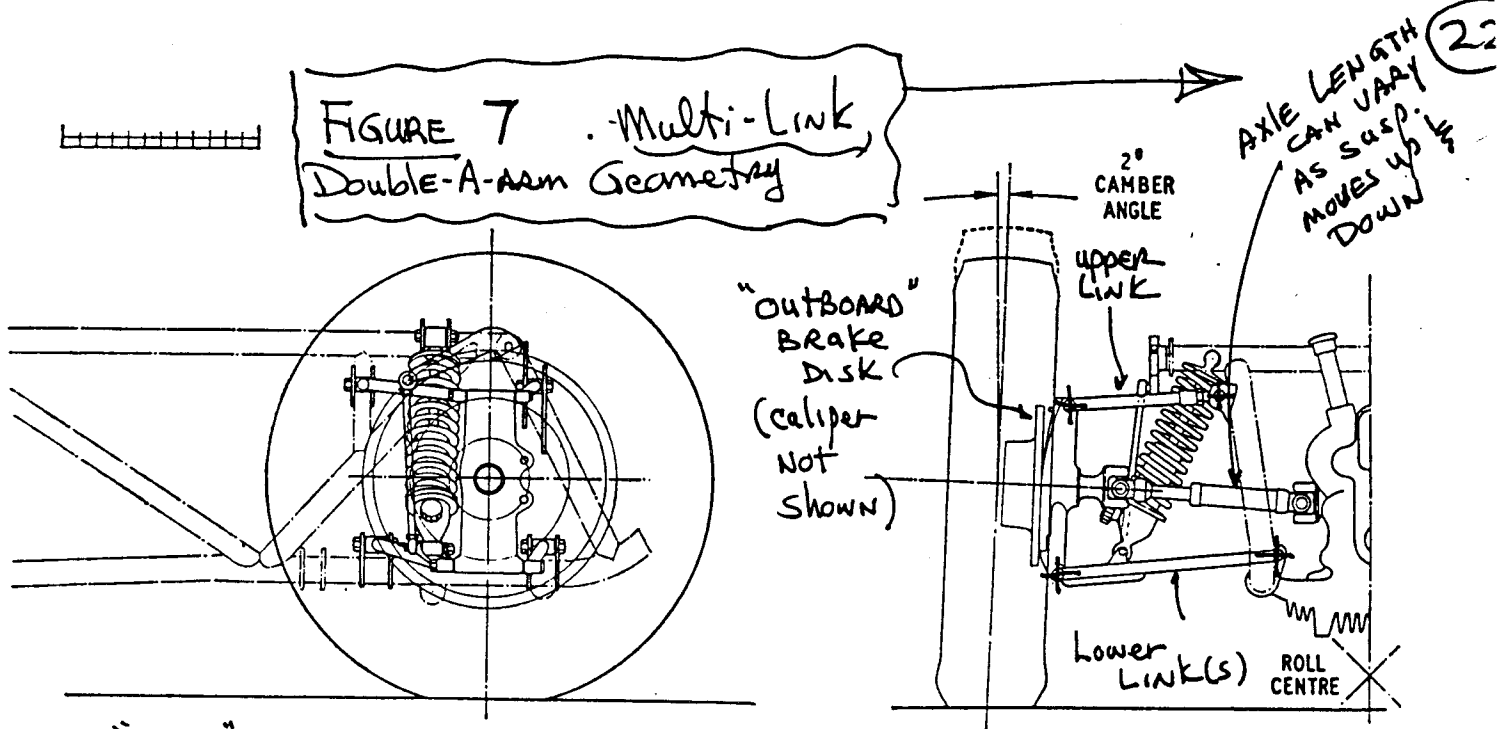 22
FIGURE 7 . Multi-Link
Double-A-Arm Geometry
AXlE LENGTH
CAN VARY
AS SUSP.
MOVES UP &
DOWN
2°
CAMBER
ANGLE
UPPER
LINK
"OUTBOARD"
BRAKE
DISK
(caliper
NOT
SHOWN)
Lower
LINK(S)
ROLL
CENTRE